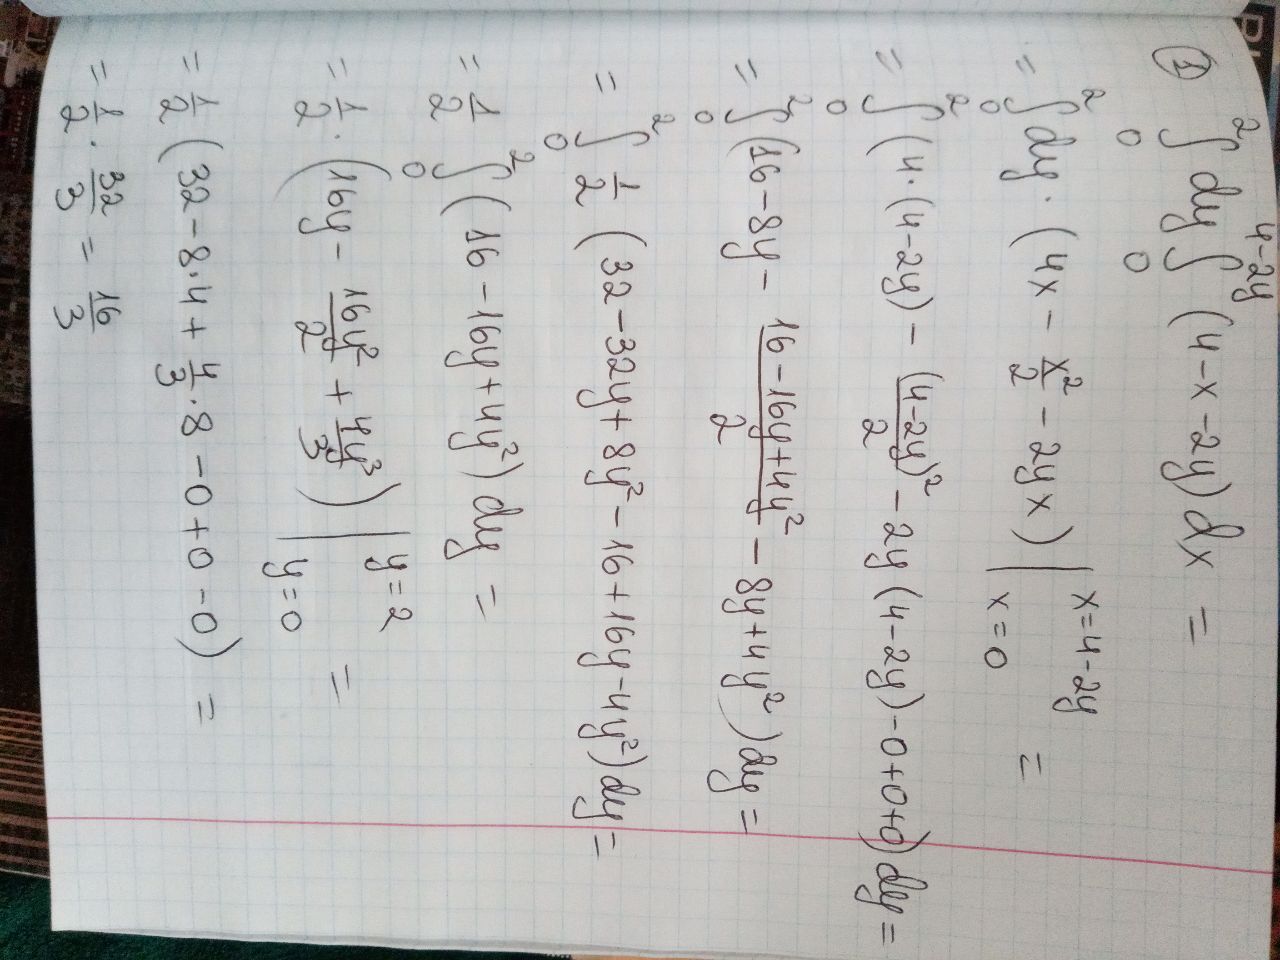 ① ∫₀² dy ∫₀^(4-2y) (4-x-2y) dx =
= ∫₀² dy · (4x - x²/2 - 2yx) | x=4-2y x=0 =
= ∫₀² (4·(4-2y) - (4-2y)²/2 - 2y(4-2y) -0+0+0) dy =
= ∫₀² (16-8y - (16-16y+4y²)/2 - 8y+4y²) dy =
= ∫₀² 1/2 (32-32y+8y²-16+16y-4y²) dy =
= 1/2 ∫₀² (16-16y+4y²) dy =
= 1/2 · (16y - 16y²/2 + 4y³/3) | y=2 y=0 =
= 1/2 (32-8·4+4/3·8 -0+0-0) =
= 1/2 · 32/3 = 16/3